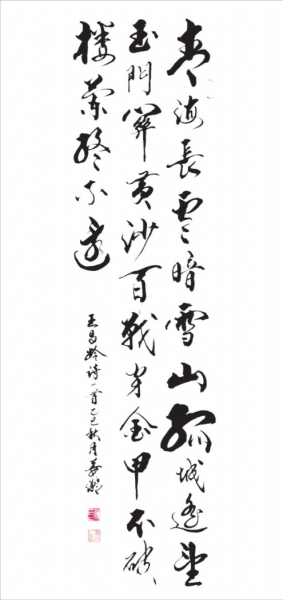 青海長雲暗雪山孤城遙望
玉門關黃沙百戰穿金甲不破
樓蘭終不還
王昌齡詩一首乙巳秋月